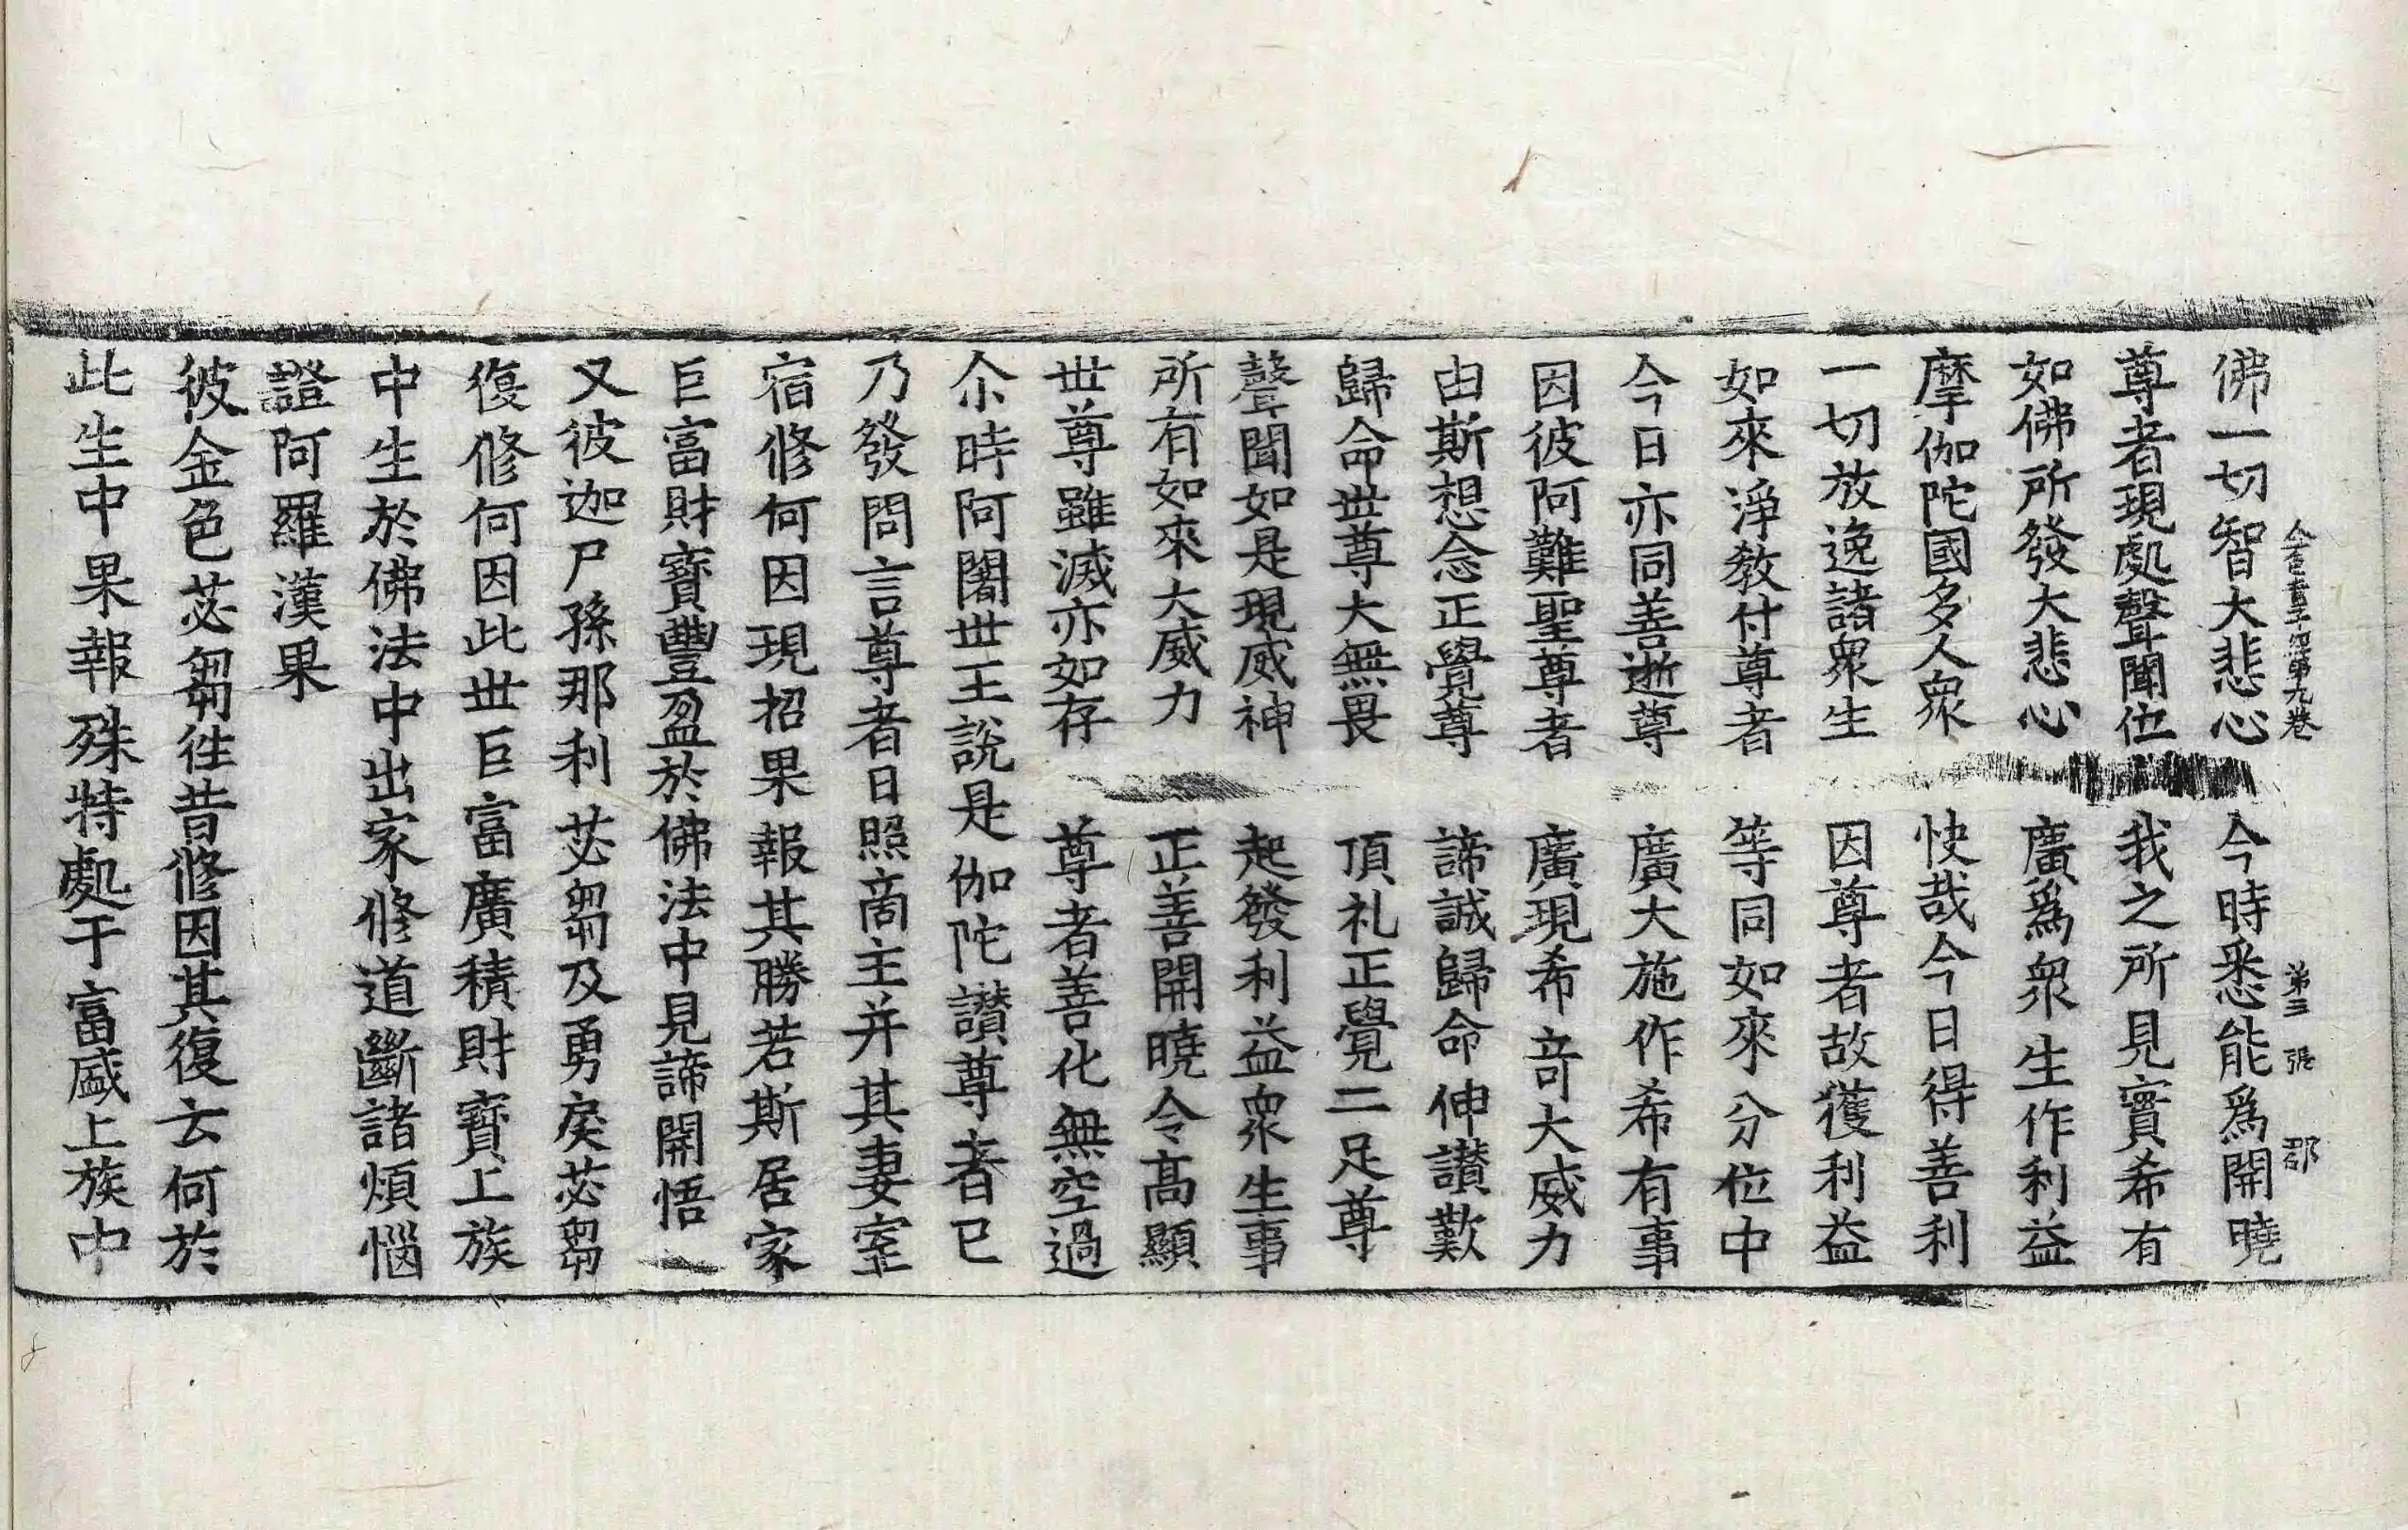 金色童子經第九卷 第三張 郡
佛一切智大悲心 今時悉能爲開曉
尊者現處聲聞位 我之所見實希有
如佛所發大悲心 廣爲衆生作利益
摩伽陀國多人衆 快哉今日得善利
一切放逸諸衆生 因尊者故獲利益
如來淨教付尊者 等同如來分位中
今日亦同善逝尊 廣大施作希有事
因彼阿難聖尊者 廣現希奇大威力
由斯想念正覺尊 諦誠歸命伸讃歎
歸命世尊大無畏 頂礼正覺二足尊
聲聞如是現威神 起發利益衆生事
所有如來大威力 正善開曉令高顯
世尊雖滅亦如存 尊者善化無空過
尒時阿闍世王說是伽陀讃尊者已
乃發問言尊者日照商主并其妻室
宿修何因現招果報其勝若斯居家
巨富財寶豐盈於佛法中見諦開悟
又彼迦尸孫那利苾芻及勇戾苾芻
復修何因此世巨富廣積財寶上族
中生於佛法中出家修道斷諸煩惱
證阿羅漢果
彼金色苾芻往昔修因其復云何於
此生中果報殊特處于富盛上族中